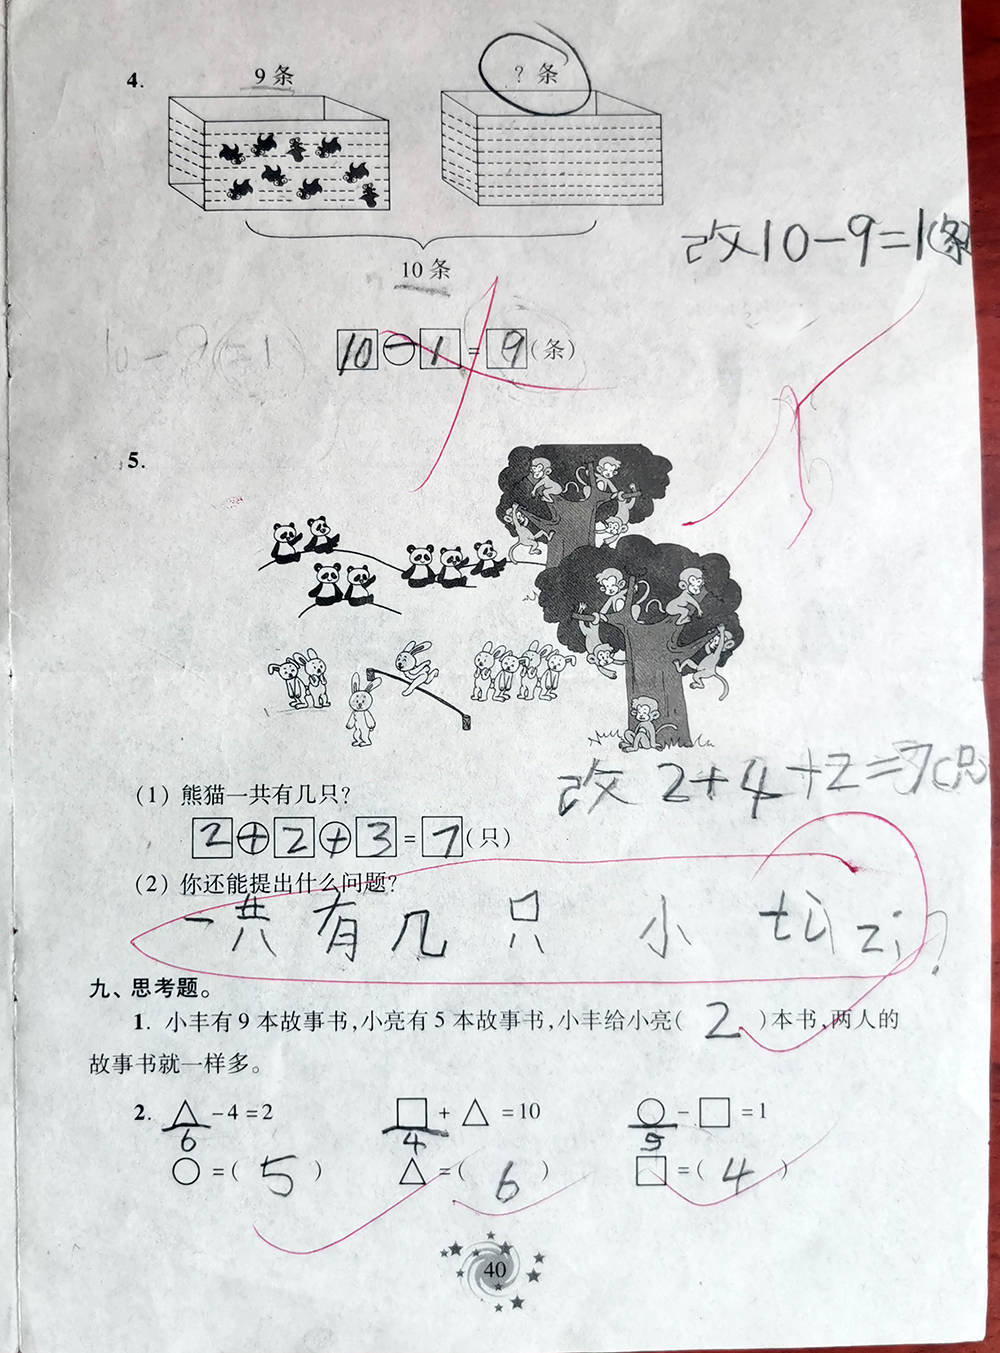 4.
9条
?条
10条
改10-9=1(条
10-9=1
10-1=9(条)
5.
改 2+4+2=7(只
(1) 熊猫一共有几只?
2+2+3=7(只)
(2) 你还能提出什么问题?
一共有几只小tùzi?
九、思考题。
1. 小丰有9本故事书,小亮有5本故事书,小丰给小亮( 2 )本书,两人的
故事书就一样多。
2. △-4=2 □+△=10 ○-□=1
6 4 5
○=( 5 ) △=( 6 ) □=( 4 )
40